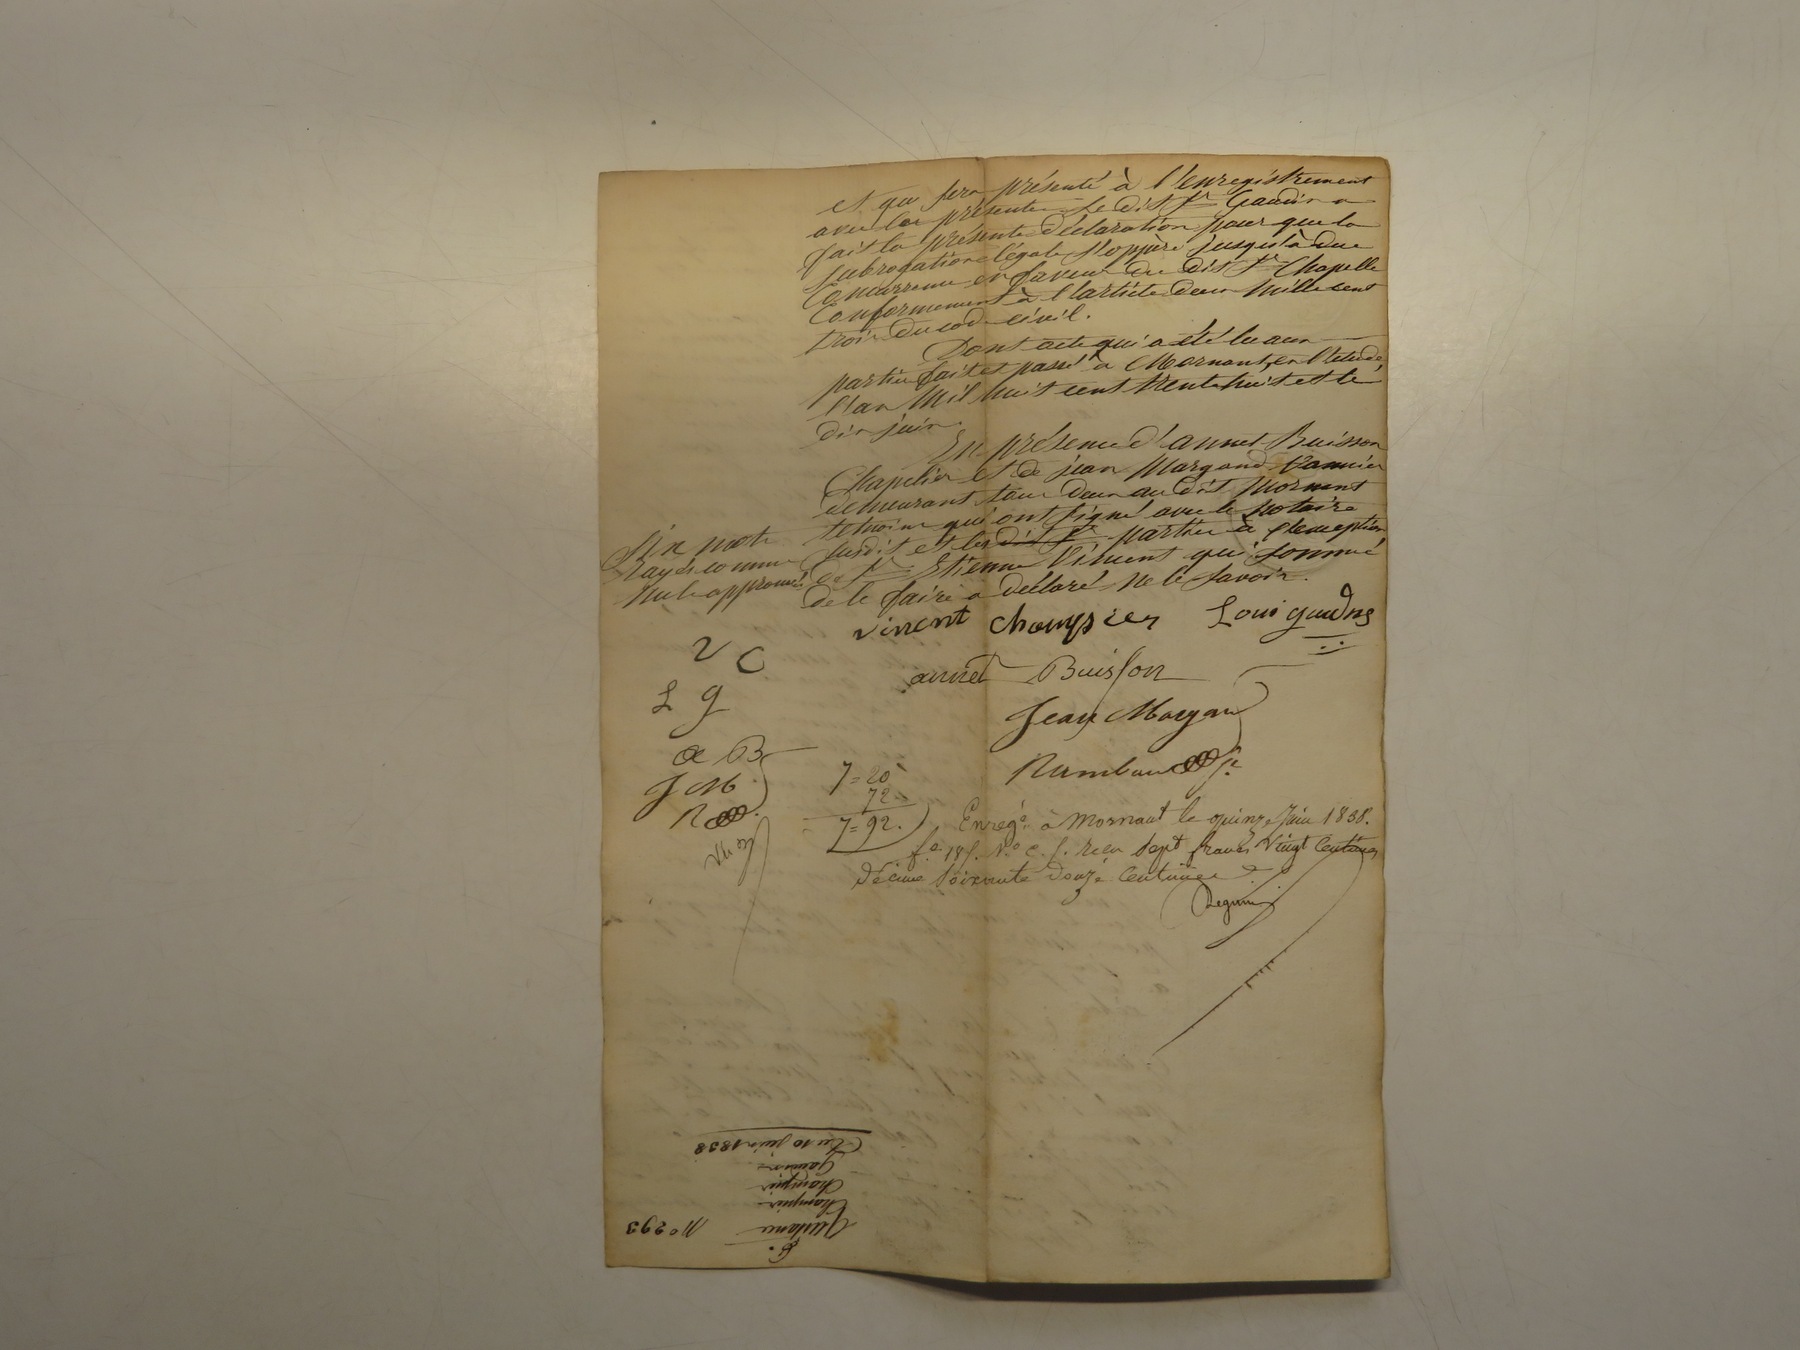 et qui sera présenté à l'enregistrement
avec les présentes le dit Sr Gaudin a
fait la présente déclaration pour que la
subrogation légale s'oppère jusqu'à due
Concurrence en faveur du dit Sr Chapelle
Conformement à l'article deux mille cent
trois du code civil.
Dont acte qui a été lu aux
parties fait et passé à Mornant, en l'étude
l'an Mil huit cent trente huit et le
dix juin.
En présence d'annet Buisson
Chapelier et de jean Margand Vannier
demeurant tous deux au dit Mornant
témoins qui ont signé avec le Notaire
susdit et les dit Sr parties à l'exception
de Sr Etienne Vincent qui sommé
de le faire a déclaré ne le savoir.
Six mots
rayés comme
nuls approuvés
vincent Champsier Loui gaudin
annet Buisson
Jean Margan
V C
L g
a B
J M
R
7=20
72
7=92.
Enregé à Mornant le quinze Juin 1838.
fo 185. Vo c. 5. reçu Sept francs Vingt Centimes
décime Soixante douze Centimes
Du 10 juin 1838
Gaudin
Quittance
No 293